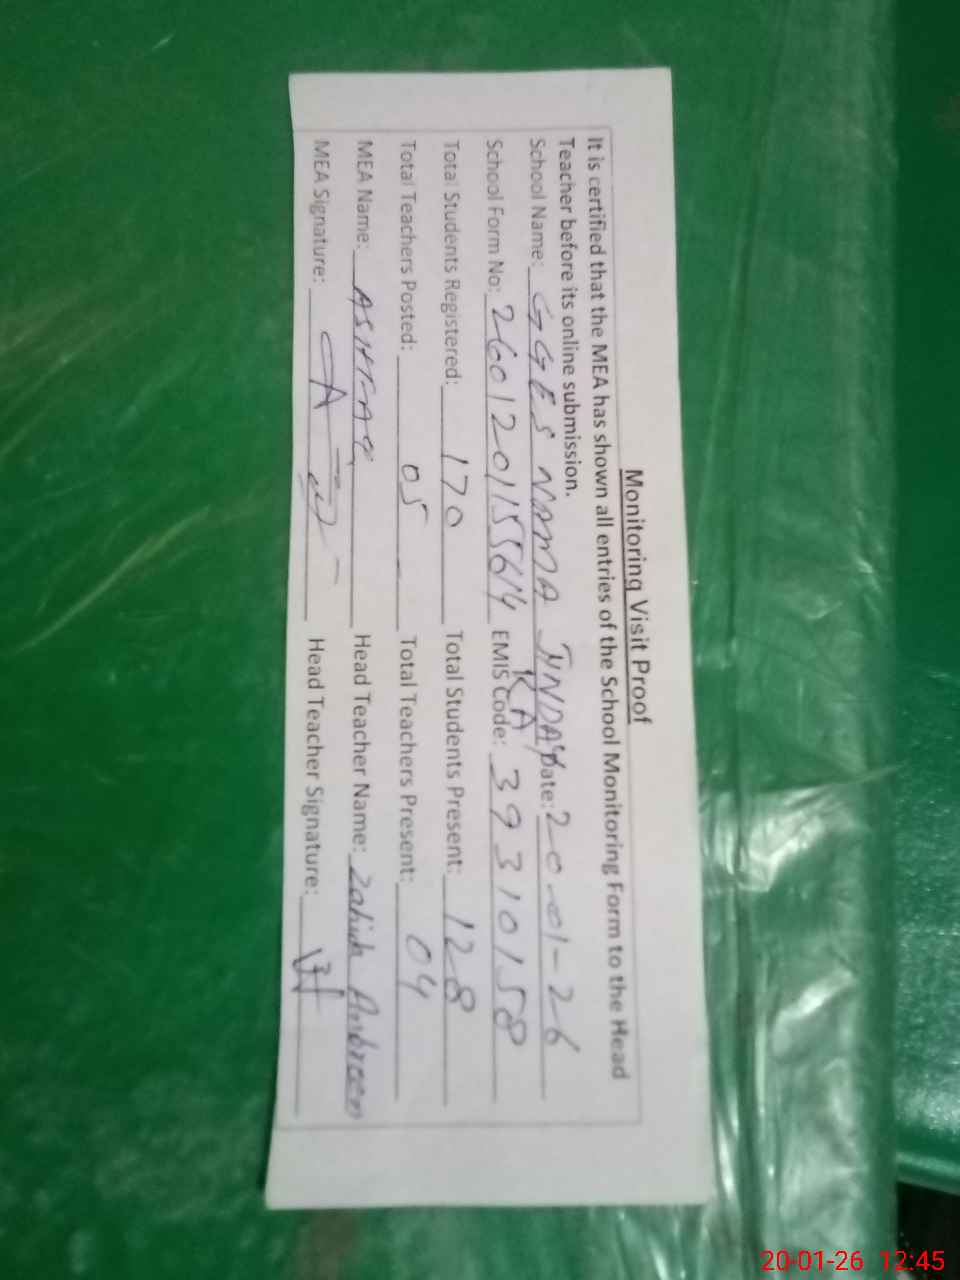 Monitoring Visit Proof
It is certified that the MEA has shown all entries of the School Monitoring Form to the Head
Teacher before its online submission.
School Name: GGES NAMA JNDAY KA Date: 20-01-26
School Form No: 26012011556 EMIS Code: 39310158
Total Students Registered: 170 Total Students Present: 128
Total Teachers Posted: 05 Total Teachers Present: 04
MEA Name: ASHFAQ Head Teacher Name: Zahida Ambreen
MEA Signature: Head Teacher Signature:
20-01-26 12:45